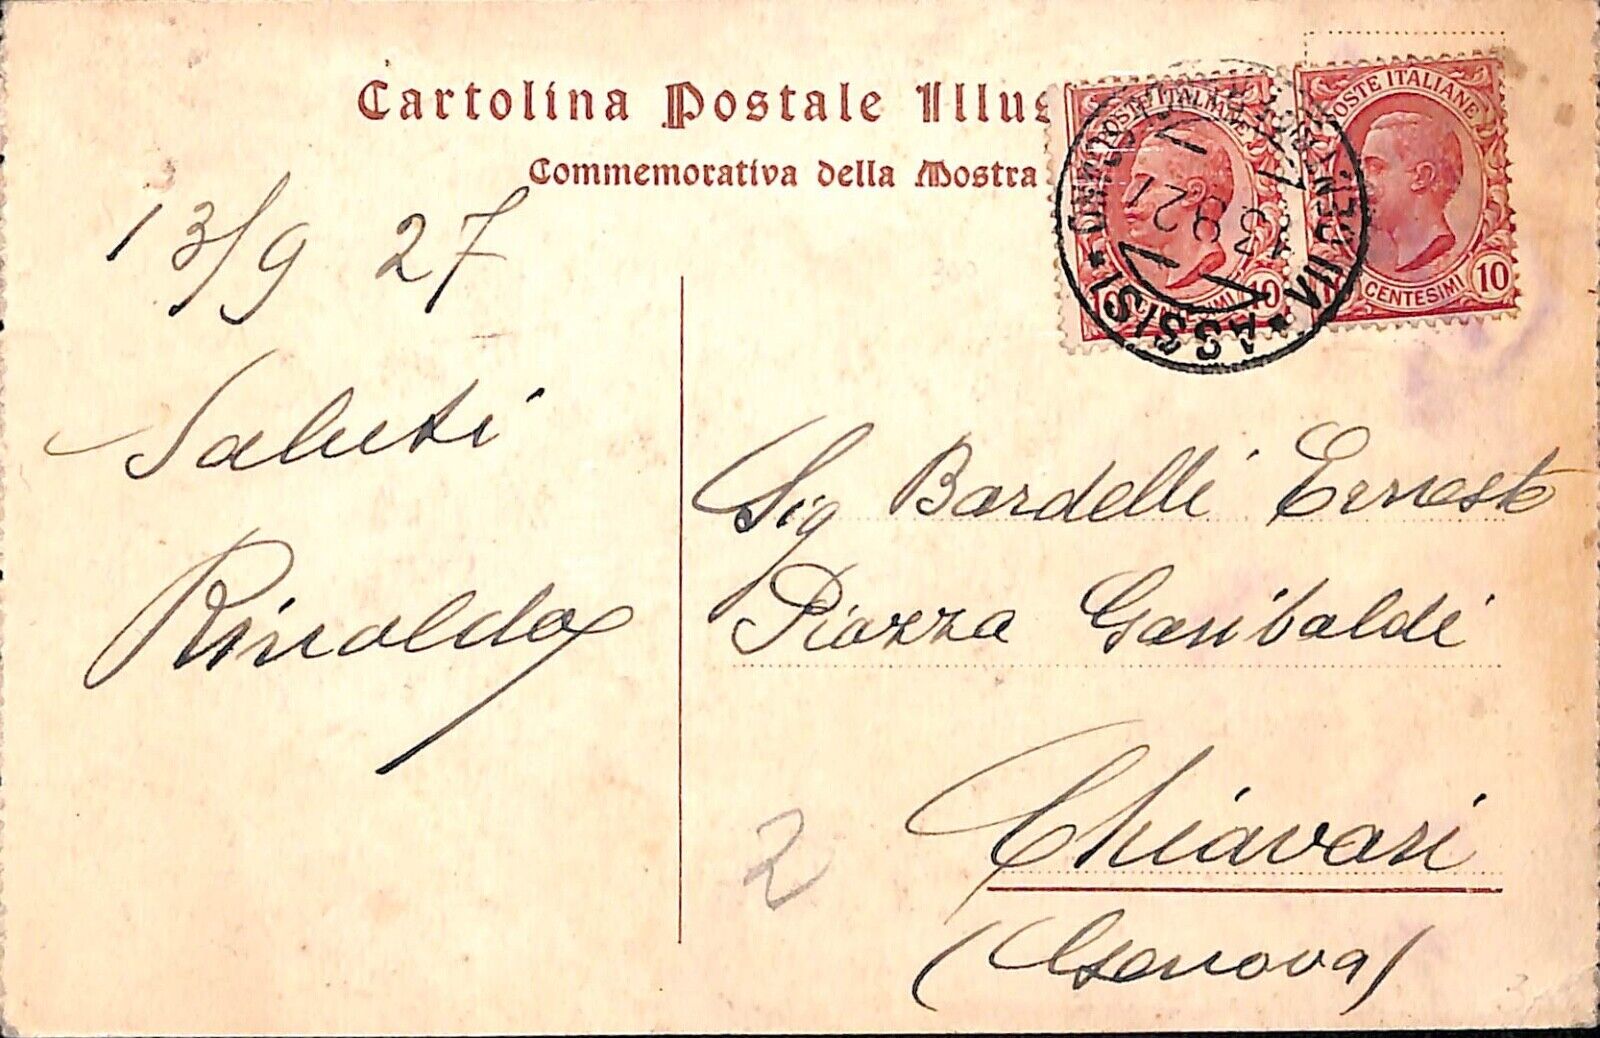 Cartolina Postale Illus
Commemorativa della Mostra
POSTE ITALIANE
10 CENTESIMI 10
POSTE ITALIANE
CENTESIMI 10
*ASSISI* VII CENT.
13/9 27
Saluti
Rinaldo
Sig Bardelli Ernesto
Piazza Garibaldi
Chiavari
(Genova)
2